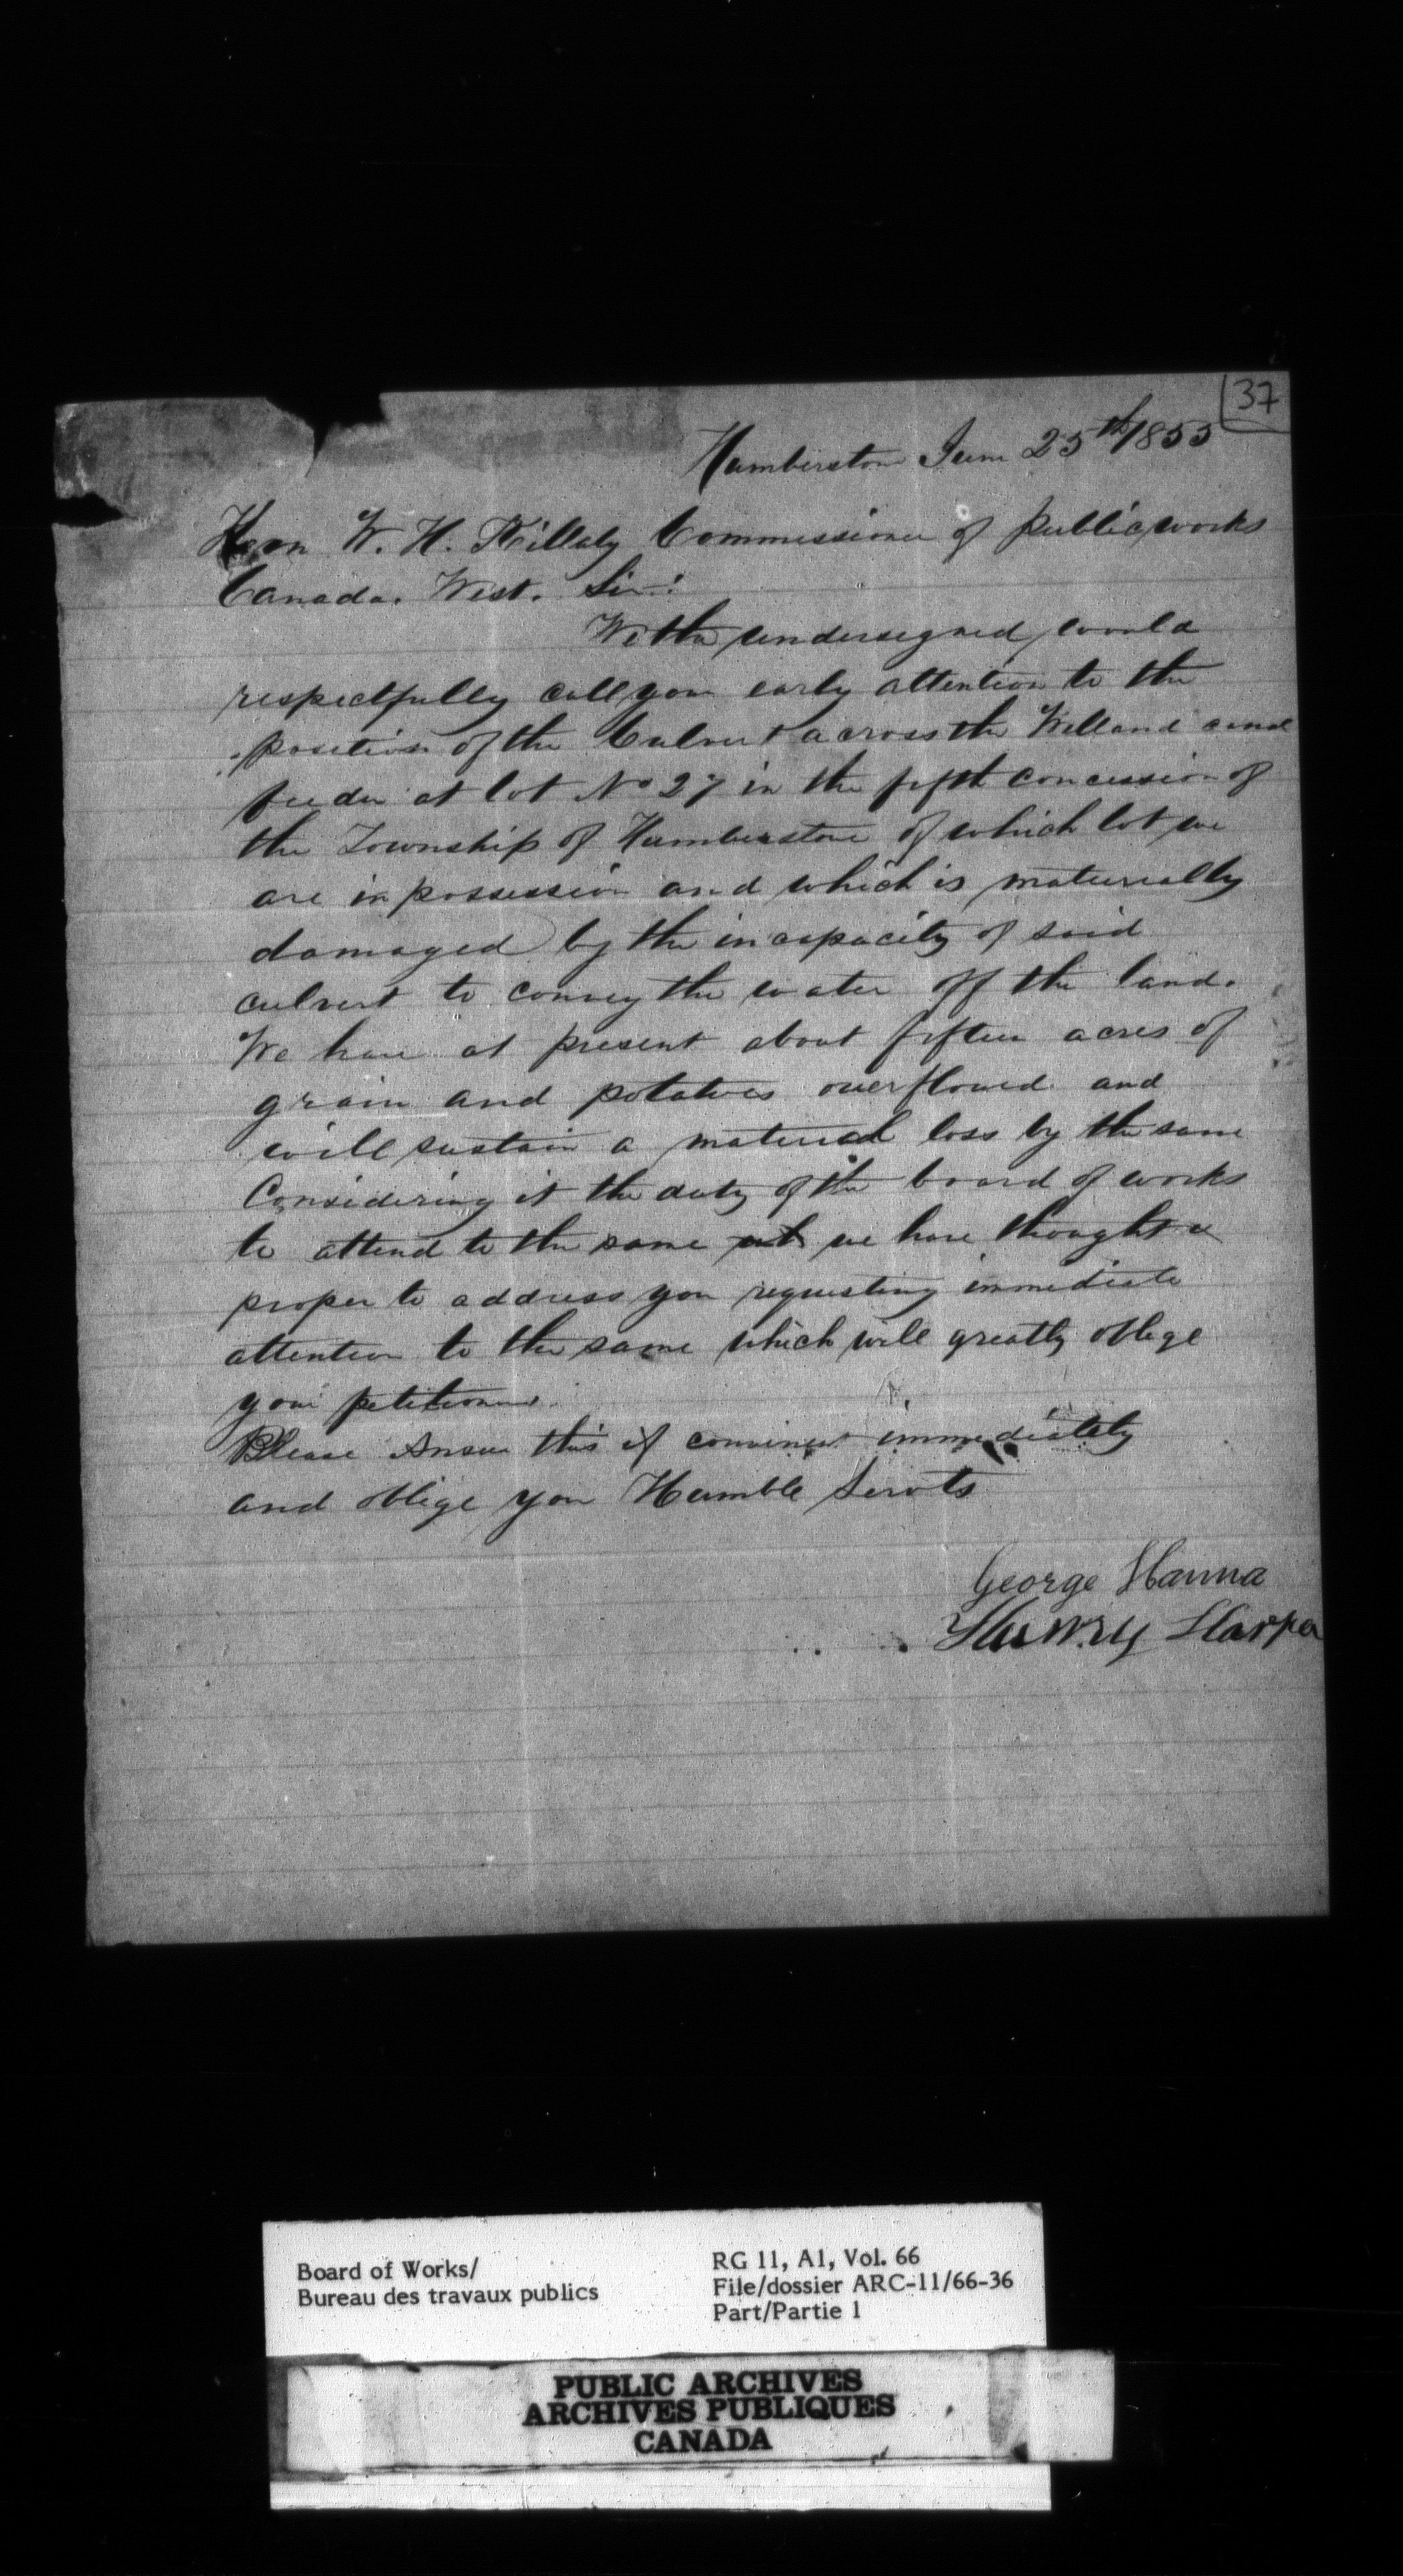 37
Humberstone June 25th 1855
Hon W. H. Killaly Commissioner of Public works
Canada. West. Sir:
We the undersigned would
respectfully call your early attention to the
position of the Culvert across the Welland canal
feeder at lot No 27 in the fifth concession of
the Township of Humberstone of which lot we
are in possession and which is materially
damaged by the incapacity of said
culvert to convey the water off the land.
We have at present about fifteen acres of
grain and potatoes overflowed and
will sustain a material loss by the same
Considering it the duty of the board of works
to attend to the same we have thought
proper to address you requesting immediate
attention to the same which will greatly oblige
your petitioners.
Please Answer this if convinent immediately
and oblige your Humble Servts
George Hanna
Henry Harper
Board of Works/
Bureau des travaux publics
RG 11, A1, Vol. 66
File/dossier ARC-11/66-36
Part/Partie 1
PUBLIC ARCHIVES
ARCHIVES PUBLIQUES
CANADA